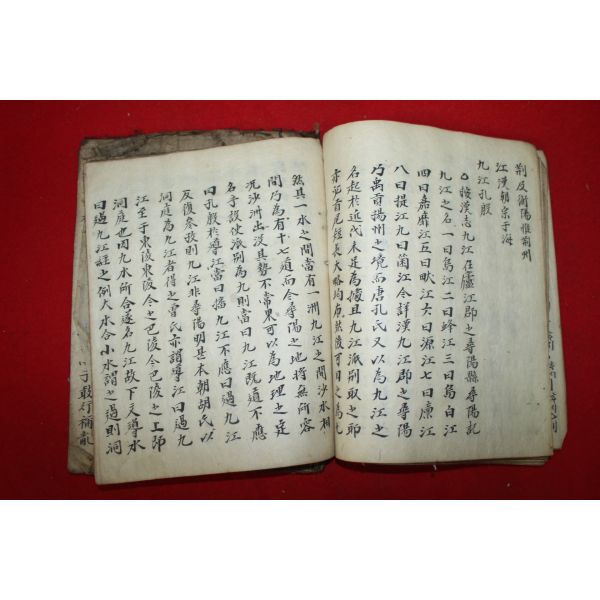 荆及衡陽惟荆州
江漢朝宗于海
九江孔殷
○按漢志九江在廬江郡之尋陽縣尋陽記
九江之名一曰烏江二曰蜂江三曰烏白江
四曰嘉靡江五曰畎江六曰源江七曰廩江
八曰提江九曰箘江今詳漢九江郡之尋陽
乃禹貢揚州之境而唐孔氏又以為九江之
名起於近代未足為據且九江派别取之耶
亦必首尾短長大略均布然後可目之為九
然其一水之間當有一洲九江之間沙水相
間乃為有十七道而今尋陽之地將無所容
况沙洲出没其勢不常果可以為地理之定
名乎設使派别為九則當曰九江既道不應
曰孔殷於導江當曰播九江不應曰過九江
反復參考則九江非尋陽明甚本朝胡氏以
洞庭為九江者得之曾氏亦謂導江曰過九
江至于東陵東陵今之巴陵今巴陵之上即
洞庭也因九水所合遂名九江故下文導水
曰過九江經之例大水合小水謂之過則洞